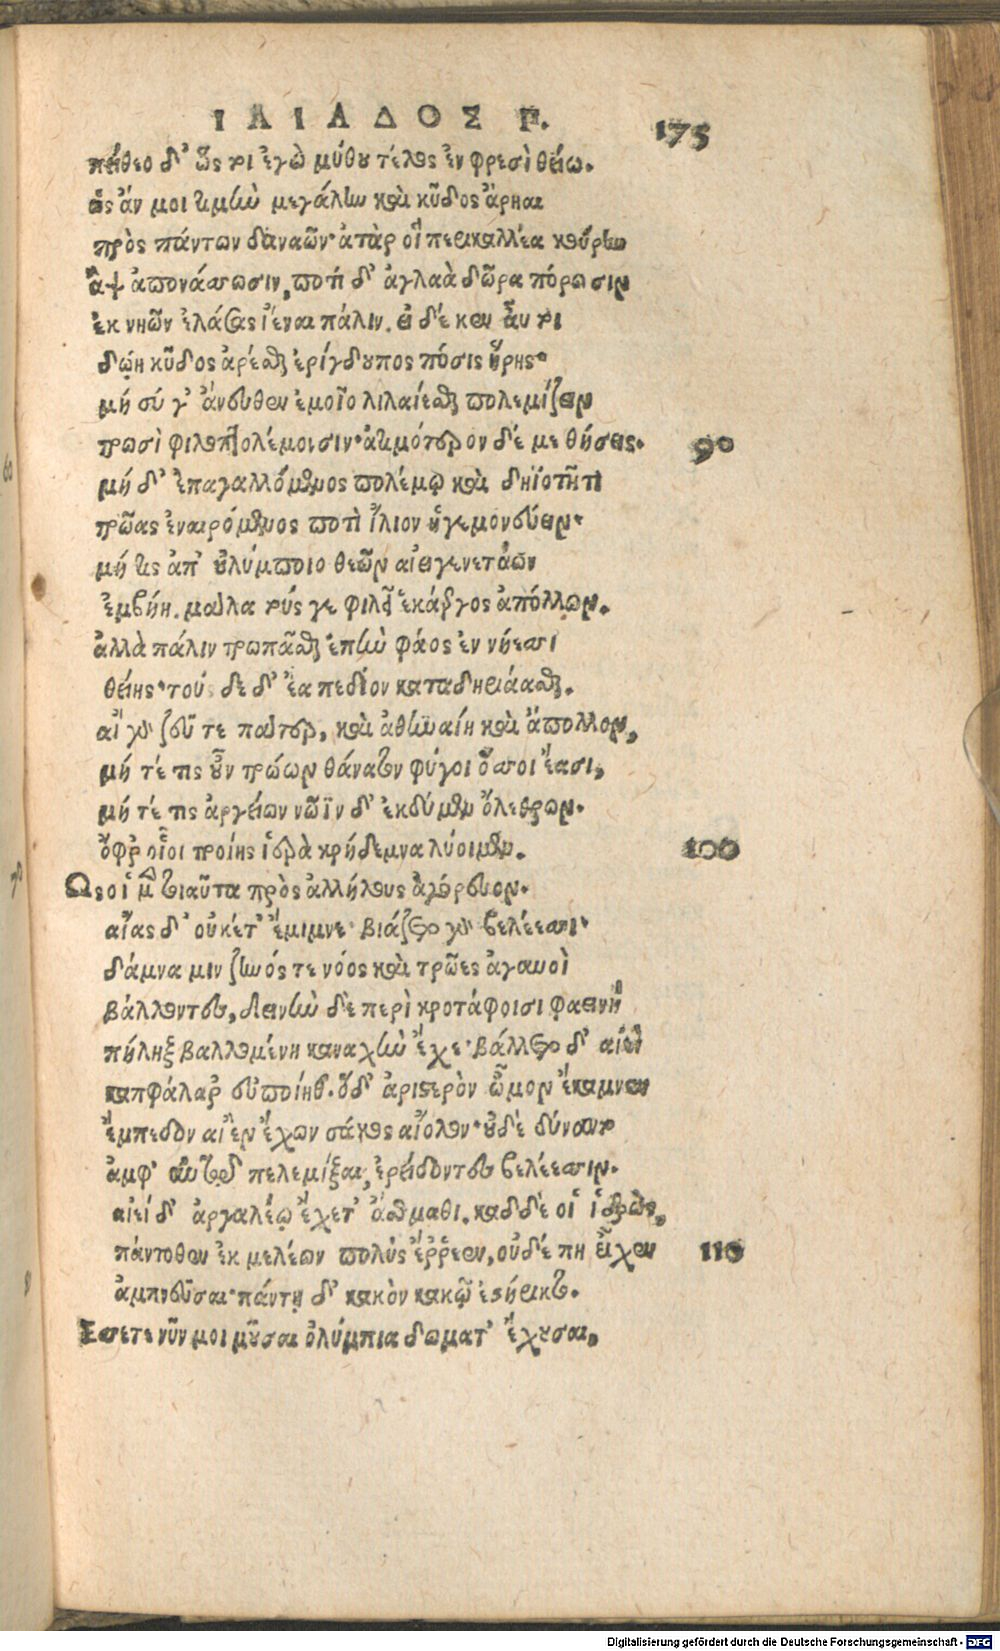 ΙΛΙΑΔΟΣ Π. 175
πείθεο δ' ὥς τοι ἐγὼ μύθου τέλος ἐν φρεσὶ θείω.
ὡς ἄν μοι τιμὴν μεγάλην καὶ κῦδος ἄρηαι
πρὸς πάντων δαναῶν· ἀτὰρ οἳ περικαλλέα κούρην
ἂψ ἀπονάσσωσιν, ποτὶ δ' ἀγλαὰ δῶρα πόρωσιν
ἐκ νηῶν ἐλάσας ἰέναι πάλιν. εἰ δέ κεν αὖ τοι
δώῃ κῦδος ἀρέσθαι ἐρίγδουπος πόσις ἥρης·
μή σύ γ' ἄνευθεν ἐμοῖο λιλαίεσθαι πολεμίζειν
τρωσὶ φιλοπτολέμοισιν· ἀτιμότερον δέ με θήσεις. 90
μή δ' ἐπαγαλλόμενος πολέμῳ καὶ δηϊοτῆτι
τρῶας ἐναιρόμενος ποτὶ ἴλιον ἡγεμονεύειν·
μή τις ἀπ' οὐλύμποιο θεῶν αἰειγενετάων
ἐμβήῃ. μάλα τούς γε φιλεῖ ἑκάεργος ἀπόλλων.
ἀλλὰ πάλιν τρωπᾶσθαι ἐπὴν φάος ἐν νήεσσι
θείης· τοὺς δε δ' ἔα πεδίον καταδηριάασθαι.
αἲ γὰρ ζεῦ τε πάτερ, καὶ ἀθηναίη καὶ ἄπολλον,
μή τέ τις οὖν τρώων θάνατον φύγοι ὅσσοι ἔασι,
μή τέ τις ἀργείων νῶϊν δ' ἐκδύμεν ὄλεθρον.
ὄφρ' οἶοι τροίης ἱερὰ κρήδεμνα λύοιμεν. 100
Ὣς οἱ μὲν τοιαῦτα πρὸς ἀλλήλους ἀγόρευον.
αἴας δ' οὐκέτ' ἔμιμνε· βιάζετο γὰρ βελέεσσι·
δάμνα μιν ζηνός τε νόος καὶ τρῶες ἀγαυοὶ
βάλλοντες, δεινὴν δὲ περὶ κροτάφοισι φαεινὴ
πήληξ βαλλομένη καναχὴν ἔχε· βάλλετο δ' αἰεὶ
καπφάλαρ' εὐποίηθ'. ὁ δ' ἀριστερὸν ὦμον ἔκαμνεν
ἔμπεδον αἰὲν ἔχων σάκος αἰόλον· οὐδὲ δύναντο
ἀμφ' αὐτῷ πελεμίξαι, ἐρείδοντες βελέεσσιν.
αἰεί δ' ἀργαλέῳ ἔχετ' ἄσθματι. καδδέ οἱ ἱδρὼς,
πάντοθεν ἐκ μελέων πολὺς ἔρρεεν, οὐδέ πη εἶχεν 110
ἀμπνεῦσαι· πάντῃ δ' κακὸν κακῷ ἐστήρικτο.
Ἔσπετε νῦν μοι μοῦσαι ὀλύμπια δωματ' ἔχουσαι,
Digitalisierung gefördert durch die Deutsche Forschungsgemeinschaft - DFG